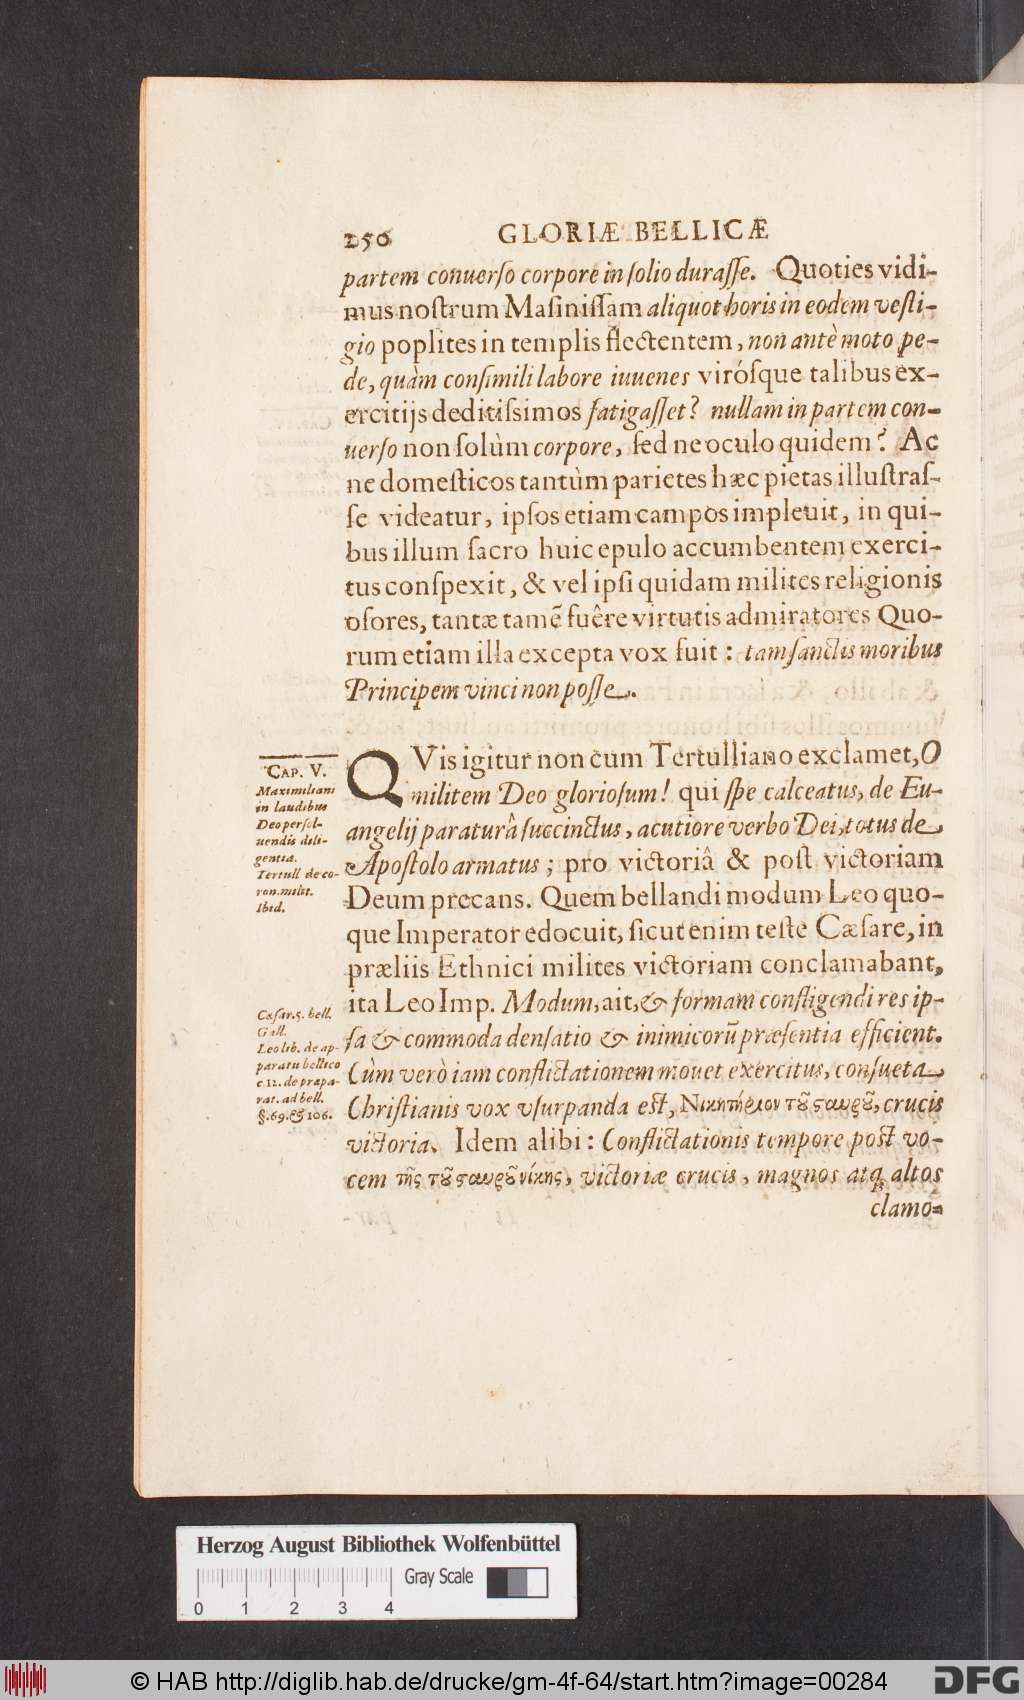 250 GLORIÆ BELLICÆ
partem conuerſo corpore in ſolio duraſſe. Quoties vidi-
mus noſtrum Maſiniſſam aliquot horis in eodem veſti-
gio poplites in templis flectentem, non antè moto pe-
de, quàm conſimili labore iuuenes viróſque talibus ex-
ercitijs deditiſsimos fatigaſſet? nullam in partem con-
uerſo non ſolùm corpore, ſed ne oculo quidem? Ac
ne domeſticos tantùm parietes hæc pietas illuſtraſ-
ſe videatur, ipſos etiam campos impleuit, in qui-
bus illum ſacro huic epulo accumbentem exerci-
tus conſpexit, & vel ipſi quidam milites religionis
oſores, tantæ tamẽ fuêre virtutis admiratores Quo-
rum etiam illa excepta vox fuit: tam ſanctis moribus
Principem vinci non poſſe.
CAP. V.
Maximiliani
in laudibus
Deo perſol-
uendis dili-
gentia.
Tertull de co-
ron. milit.
Ibid.
QVis igitur non cum Tertulliano exclamet, O
militem Deo glorioſum! qui ſpe calceatus, de Eu-
angelij paraturâ ſuccinctus, acutiore verbo Dei, totus de
Apoſtolo armatus; pro victoriâ & poſt victoriam
Deum precans. Quem bellandi modum Leo quo-
que Imperator edocuit, ſicut enim teſte Cæſare, in
præliis Ethnici milites victoriam conclamabant,
Cæſar. 5. bell.
Gall.
Leo lib. de ap-
paratu bellico
c. 12. de præpa-
rat. ad bell.
§. 69. & 106.
ita Leo Imp. Modum, ait, & formam confligendi res ip-
ſa & commoda denſatio & inimicorũ præſentia efficient.
Cùm verò iam conflictationem mouet exercitus, conſueta
Chriſtianis vox vſurpanda eſt, Νικητήριον τοῦ σταυροῦ, crucis
victoria. Idem alibi: Conflictationis tempore poſt vo-
cem τῆς τοῦ σταυροῦ νίκης, victoriæ crucis, magnos atq; altos
clamo-
Herzog August Bibliothek Wolfenbüttel
Gray Scale
0 1 2 3 4
© HAB http://diglib.hab.de/drucke/gm-4f-64/start.htm?image=00284
DFG